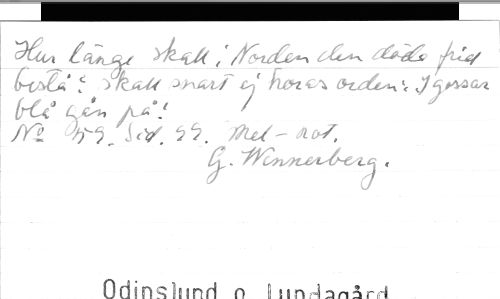 Hur länge skall i Norden den döda frid
bestå? Skall snart ej höras orden: I gossar
blå gån på!
No 59. Sid. 99. Mel-not.
G. Wennerberg.
Odinslund o. Lundagård